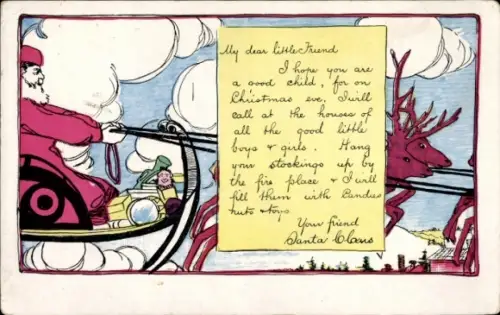 My dear little Friend
I hope you are
a good child, for on
Christmas eve, I will
call at the houses of
all the good little
boys & girls. Hang
your stockings up by
the fire place & I will
fill them with Candies
nuts & toys
Your friend
Santa Claus